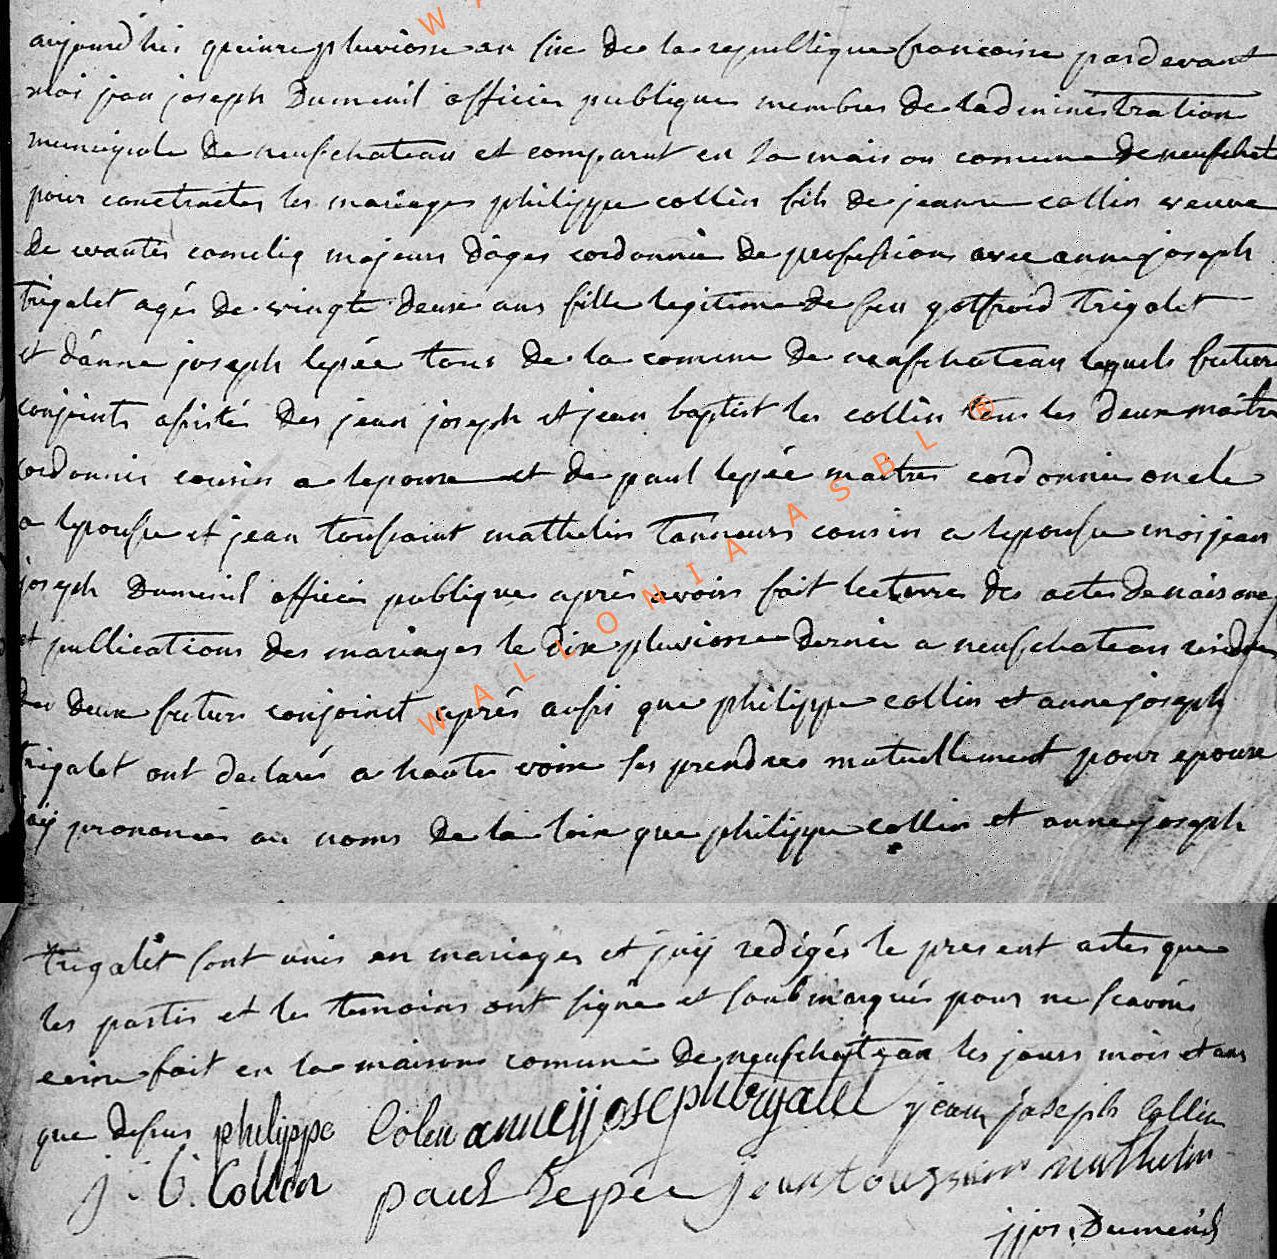 aujourd'huis queinze pluviosse an sixe de la republique francoise pardevant
moi jean joseph Dumenil officier publique membres de ladministration
municipale de neufchateau et comparut en la maison comune de neufchat
pour conctracter les mariage philippe collin fils de jeanne collin veuve
de majeur dages cordonnié de profession avec anne joseph
Trigalet agés de vingte deuxe ans fille legitime de feu gotfroid trigalet
et d'anne joseph lepée tous de la comune de neufchateau lequels future
conjoints asistés des jean joseph et jean baptist les collin tous les deux maitre
cordonnier cousin a lepouse et de paul lepée maitres cordonnié oncle
a lepouse et jean toussaint mathelin tanneurs cousin a lepouse moi jean
joseph Dumenil officié publique aprés avoir fait lecture des actes de naisance
et publications des mariages le dixe pluviosse dernié a neufchateau
des deux futurs conjoinct aprés aussi que philippe collin et anne joseph
trigalet ont declarés a hautes voixe se prendres mutuellement pour epouse
jaij prononcés au noms de la loix que philippe collin et anne joseph
trigalet sont unis en mariages et jaij redigés le present actes que
les partis et les temoins ont signé et soubmarqués pour ne scavoir
fait en la maison comune de neufchateau les jours mois et ans
que desus philippe Colin anneijjoseph trigalet jean joseph Collin
j. b. Collin paul Lepee jean toussain mathelin
jjos. Dumenil
WALLONIA ASBL ®
W A